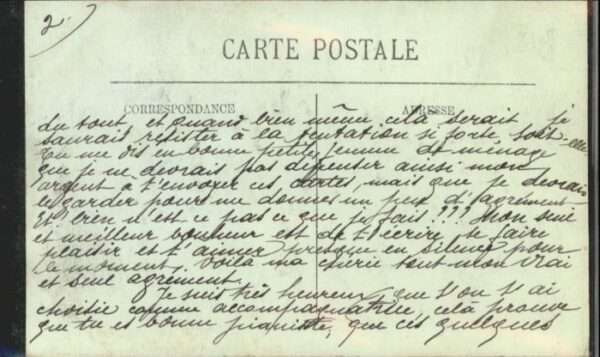 2)
CARTE POSTALE
CORRESPONDANCE
ADRESSE
du tout et quand bien même cela serait je
saurais résister à la tentation si forte soit-elle
Tu me dis en bonne petite femme de ménage
que je ne devrais pas dépenser ainsi mon
argent à t'envoyer ces cartes, mais que je devrais
le garder pour me donner un peu d'agrément-
Et bien n'est ce pas ce que je fais ??? Mon seul
et meilleur bonheur est de t'écrire, te faire
plaisir et t'aimer presque en silence pour
le moment. Voilà ma chérie tout mon vrai
et seul agrément.
Je suis très heureux que l'on t'ai
choisie comme accompagnatrice, cela prouve
que tu es bonne pianiste, que ces quelques